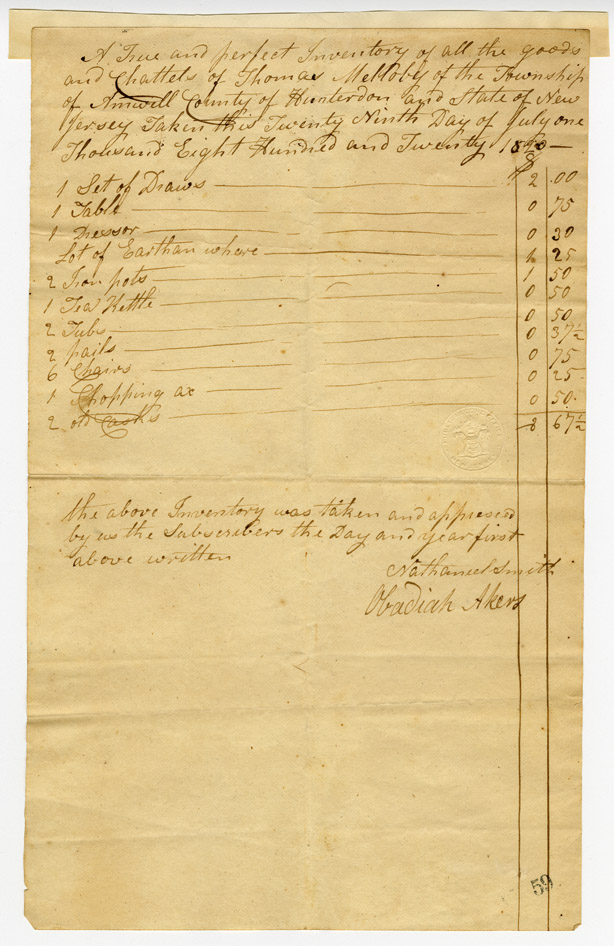 A True and perfect Inventory of all the goods
and Chattels of Thomas Melloby of the Township
of Amwell County of Hunterdon and State of New
Jersey Taken this Twenty Ninth Day of July one
Thousand Eight Hundred and Twenty 1820 —
1 Set of Draws 2 .00
1 Table 0 75
1 Dressor 0 30
Lot of Earthan whore 1 25
2 Iron pots 1 50
1 Tea Kettle 0 50
2 Tubs 0 50
2 pails 0 37½
6 Chairs 0 75
1 Chopping ax 0 25
2 old Casks 0 50
8 67½
the above Inventory was taken and appriesed
by us the Subscribers the Day and year first
above written
Nathaniel Smith
Obadiah Akers
59